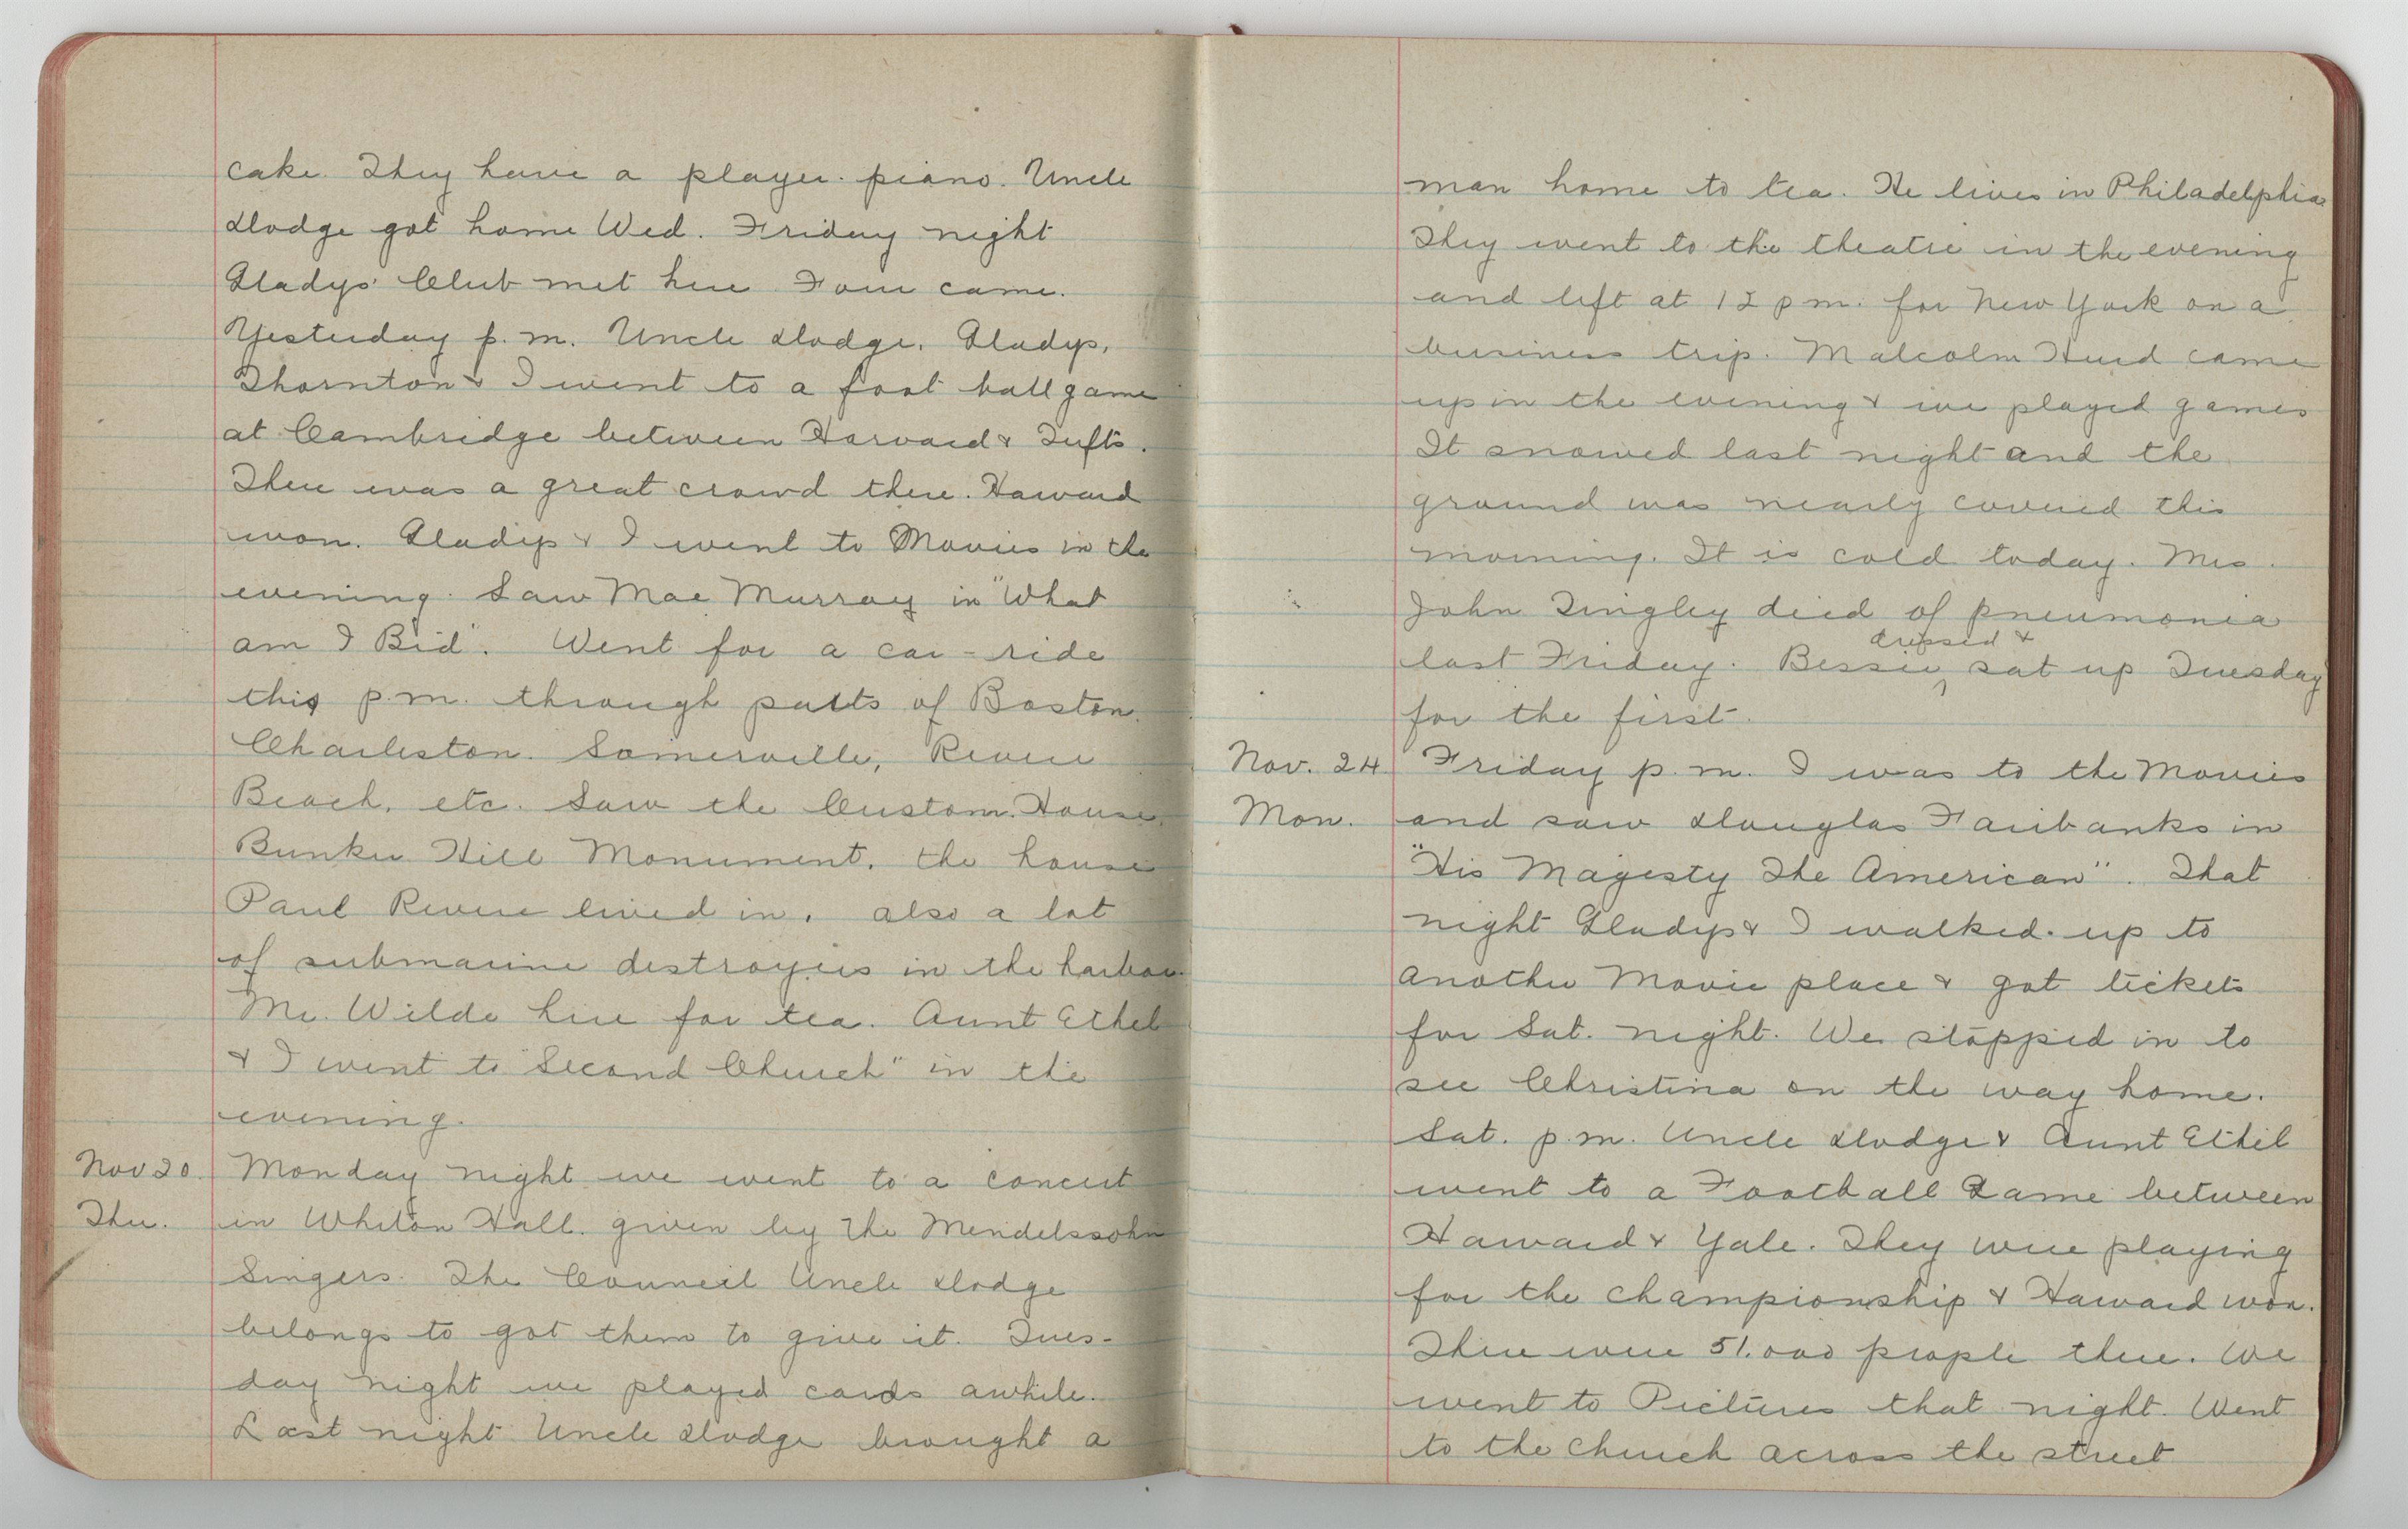 cake. They have a player-piano. Uncle
Dodge got home Wed. Friday night
Gladys' Club met here. Four came.
Yesterday p.m. Uncle Dodge, Gladys,
Thornton & I went to a foot ball game
at Cambridge between Harvard & Tufts.
There was a great crowd there. Harvard
won. Gladys & I went to Movies in the
evening. Saw Mae Murray in "What
am I Bid". Went for a car-ride
this p.m. through parts of Boston.
Charleston. Somerville, Revere
Beach, etc. Saw the Custom House,
Bunker Hill Monument, the house
Paul Revere lived in, also a lot
of submarine destroyers in the harbor.
Mr. Wilde here for tea. Aunt Ethel
& I went to "Second Church" in the
evening.
Nov 20. Monday night we went to a concert
Thu. in Whiton Hall. given by the Mendelssohn
Singers. The Council Uncle Dodge
belongs to got them to give it. Tues-
day night we played cards awhile.
Last night Uncle Dodge brought a
man home to tea. He lives in Philadelphia
They went to the theatre in the evening
and left at 12 p.m. for New York on a
business trip. Malcolm Hurd came
up in the evening & we played games
It snowed last night and the
ground was nearly covered this
morning. It is cold today. Mrs.
John Tingley died of pneumonia
last Friday. Bessie dressed & sat up Tuesday
for the first.
Nov. 24 Friday p.m. I was to the Movies
Mon. and saw Douglas Fairbanks in
"His Magesty The American". That
night Gladys & I walked up to
another Movie place & got tickets
for Sat. night. We stopped in to
see Christina on the way home.
Sat. p.m. Uncle Dodge & Aunt Ethel
went to a Football Game between
Harvard & Yale. They were playing
for the championship & Harvard won.
There were 51.000 people there. We
went to Pictures that night. Went
to the church across the street